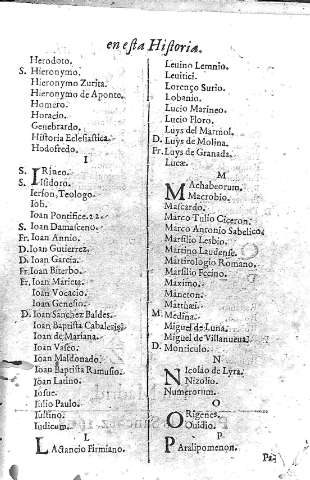 en esta Historia.
Herodoto.
S. Hieronymo.
Hieronymo Zurita.
Hieronymo de Aponte.
Homero.
Horacio.
Genebrardo.
Historia Eclesiastica.
Hodofredo.
I
S. IRineo.
S. Isidoro.
Ierson, Teologo.
Iob.
Ioan Pontifice.22.
S. Ioan Damasceno.
Fr. Ioan Annio.
D. Ioan Gutierrez.
D. Ioan Garcia.
Fr. Ioan Biterbo.
Fr. Ioan Marieta.
Ioan Vocacio.
Ioan Genesio.
D. Ioan Sanchez Baldes.
Ioan Baptista Cabalcais.
Ioan de Mariana.
Ioan Vaseo.
Ioan Maldonado.
Ioan Baptista Ramusio.
Ioan Latino.
Iosue.
Iulio Paulo.
Iustino.
Iudicum.
L
LActancio Firmiano.
Leuino Lemnio.
Leuitici.
Lorenço Surio.
Lobanio.
Lucio Marineo.
Lucio Floro.
Luys del Marmol.
D. Luys de Molina.
Fr. Luys de Granada.
Lucæ.
M
MAchabeorum.
Macrobio.
Mascardo.
Marco Tulio Ciceron.
Marco Antonio Sabelico.
Marsilio Lesbio.
Martino Laudense.
Martirologio Romano.
Marsilio Fecino.
Maximo.
Maneton.
Matthæi.
M. Medina.
Miguel de Luna.
Miguel de Villanueua.
D. Monticulo.
N
NIcolao de Lyra.
Nizolio.
Numerorum.
O
ORigenes.
Ouidio.
P
PAralipomenon.